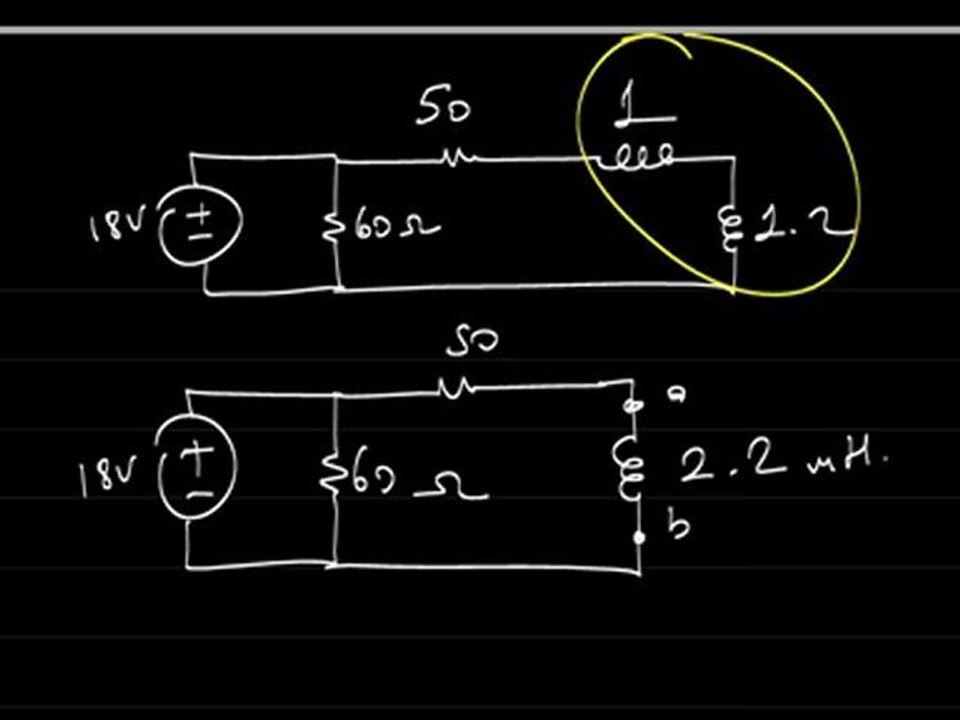 50
1
18V
+
-
60Ω
1.2
50
a
18V
+
-
60 Ω
2.2 mH.
b